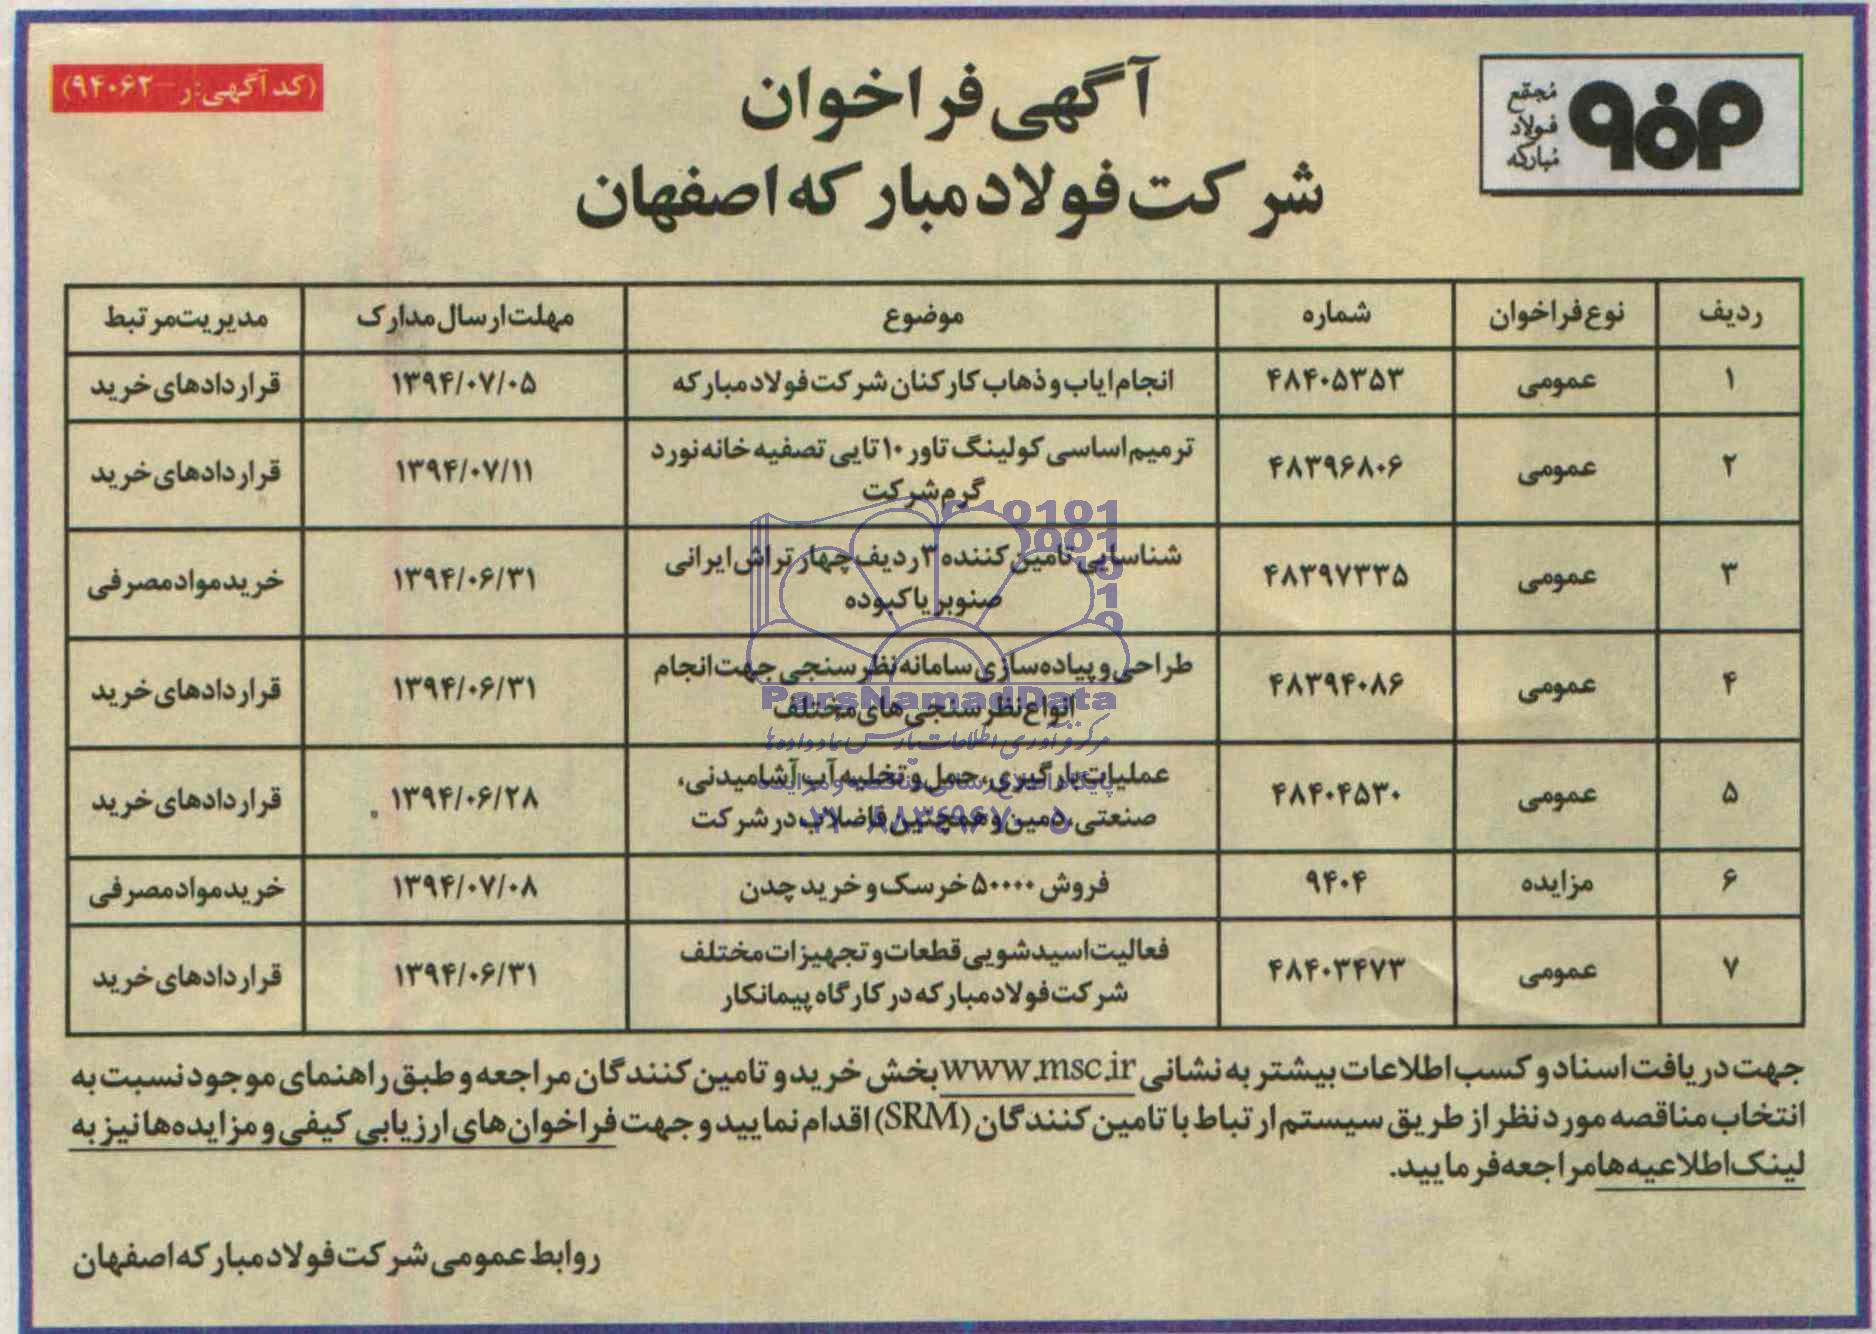 (کد آگهی: ر-۹۴۰۶۲)
مجتمع
فولاد
مبارکه
آگهی فراخوان
شرکت فولاد مبارکه اصفهان
ردیف نوع فراخوان شماره موضوع مهلت ارسال مدارک مدیریت مرتبط
۱ عمومی ۴۸۴۰۵۳۵۳ انجام ایاب و ذهاب کارکنان شرکت فولاد مبارکه ۱۳۹۴/۰۷/۰۵ قراردادهای خرید
۲ عمومی ۴۸۳۹۶۸۰۶ ترمیم اساسی کولینگ تاور ۱۰ تایی تصفیه خانه نورد
گرم شرکت ۱۳۹۴/۰۷/۱۱ قراردادهای خرید
۳ عمومی ۴۸۳۹۷۳۳۵ شناسایی تامین کننده ۳ ردیف چهار تراش ایرانی
صنوبر یا کبوده ۱۳۹۴/۰۶/۳۱ خرید مواد مصرفی
۴ عمومی ۴۸۳۹۴۰۸۶ طراحی و پیاده سازی سامانه نظر سنجی جهت انجام
انواع نظر سنجی های مختلف ۱۳۹۴/۰۶/۳۱ قراردادهای خرید
۵ عمومی ۴۸۴۰۴۵۳۰ عملیات بارگیری، حمل و تخلیه آب آشامیدنی،
صنعتی، دمین و همچنین فاضلاب در شرکت ۱۳۹۴/۰۶/۲۸ قراردادهای خرید
۶ مزایده ۹۴۰۴ فروش ۵۰۰۰۰ خرسک و خرید چدن ۱۳۹۴/۰۷/۰۸ خرید مواد مصرفی
۷ عمومی ۴۸۴۰۳۴۷۳ فعالیت اسیدشویی قطعات و تجهیزات مختلف
شرکت فولاد مبارکه در کارگاه پیمانکار ۱۳۹۴/۰۶/۳۱ قراردادهای خرید
ParsNamadData
جهت دریافت اسناد و کسب اطلاعات بیشتر به نشانی www.msc.ir بخش خرید و تامین کنندگان مراجعه و طبق راهنمای موجود نسبت به
انتخاب مناقصه مورد نظر از طریق سیستم ارتباط با تامین کنندگان (SRM) اقدام نمایید و جهت فراخوان های ارزیابی کیفی و مزایده ها نیز به
لینک اطلاعیه ها مراجعه فرمایید.
روابط عمومی شرکت فولاد مبارکه اصفهان